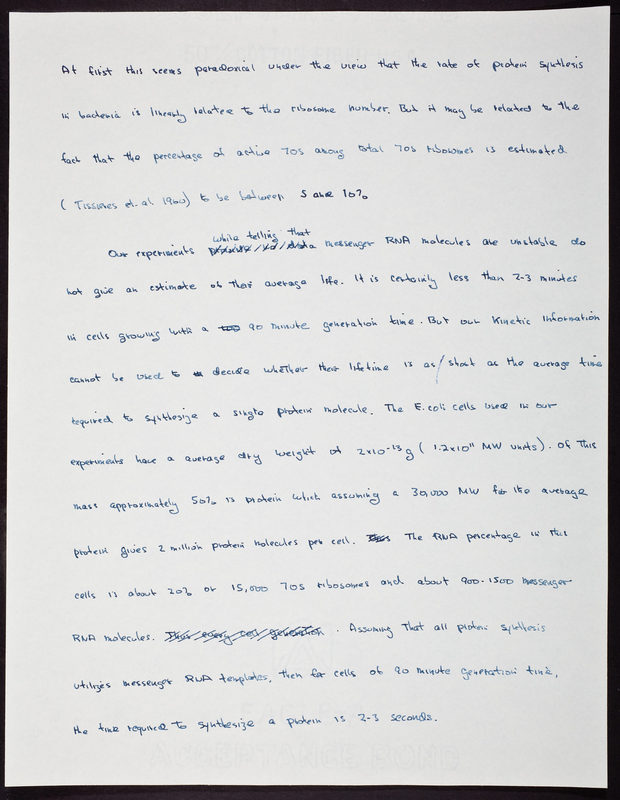 At first this seems paradoxical under the view that the rate of protein synthesis
in bacteria is linearly related to the ribosome number. But it may be related to the
fact that the percentage of active 70s among total 70s ribosomes is estimated
(Tissieres et. al 1960) to be between 5 and 10%
while telling that
Our experiments messenger RNA molecules are unstable do
not give an estimate of their average life. It is certainly less than 2-3 minutes
in cells growing with a 90 minute generation time. But our kinetic information
cannot be used to decide whether their lifetime is as short as the average time
required to synthesize a single protein molecule. The E. coli cells used in our
experiments have a average dry weight of 2x10-13 g (1.2x10" MW units). Of this
mass approximately 50% is protein which assuming a 30,000 MW for the average
protein gives 2 million protein molecules per cell. The RNA percentage in this
cells is about 20% or 15,000 70s ribosomes and about 900-1500 messenger
RNA molecules. Thus every cell generation . Assuming that all protein synthesis
utilizes messenger RNA templates, then for cells of 90 minute generation time,
the time required to synthesize a protein is 2-3 seconds.
ACCEPTANCE BOND